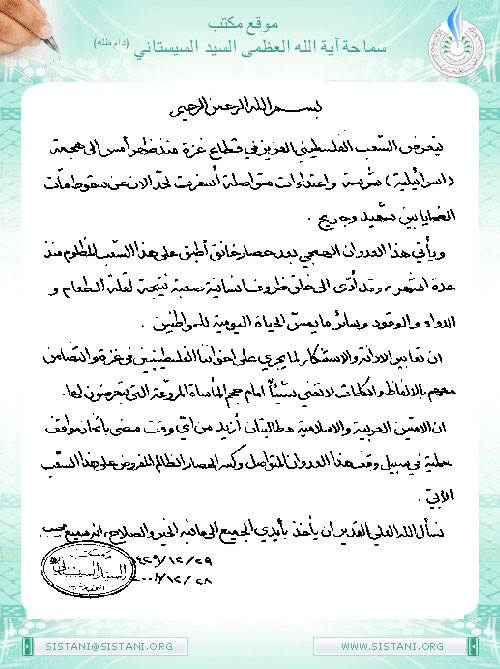 موقع مكتب
سماحة آية الله العظمى السيد السيستاني (دام ظله)
بسم الله الرحمن الرحيم
يتعرض الشعب الفلسطيني العزيز في قطاع غزة منذ ظهر أمس الى هجمة
(اسرائيلية) شرسة واعتداءات متواصلة أسفرت لحد الآن عن سقوط مئات
الضحايا بين شهيد وجريح .
ويأتي هذا العدوان الهمجي بعد حصار خانق أطبق على هذا الشعب المظلوم منذ
عدة اشهر، وقد أدّى الى خلق ظروف انسانية صعبة نتيجة لقلة الطعام و
الدواء والوقود وسائر ما يمسّ الحياة اليومية للمواطنين .
ان تعابير الادانة والاستنكار لما يجري على اخواننا الفلسطينيين في غزة والتضامن
معهم بالألفاظ والكلمات لا تعني شيئاً امام حجم المأساة المروعة التي يتعرضون لها.
ان الامتين العربية والاسلامية مطالبتان أزيد من أيّ وقت مضى باتخاذ مواقف
عملية في سبيل وقف هذا العدوان المتواصل وكسر الحصار الظالم المفروض على هذا الشعب
الأبيّ .
نسأل الله العلي القدير ان يأخذ بأيدي الجميع الى ما فيه الخير والصلاح، انه سميع مجيب
١٤٢٩/١٢/٢٩
٢٠٠٨/١٢/٢٨
السيد السيستاني
SISTANI@SISTANI.ORG
WWW.SISTANI.ORG